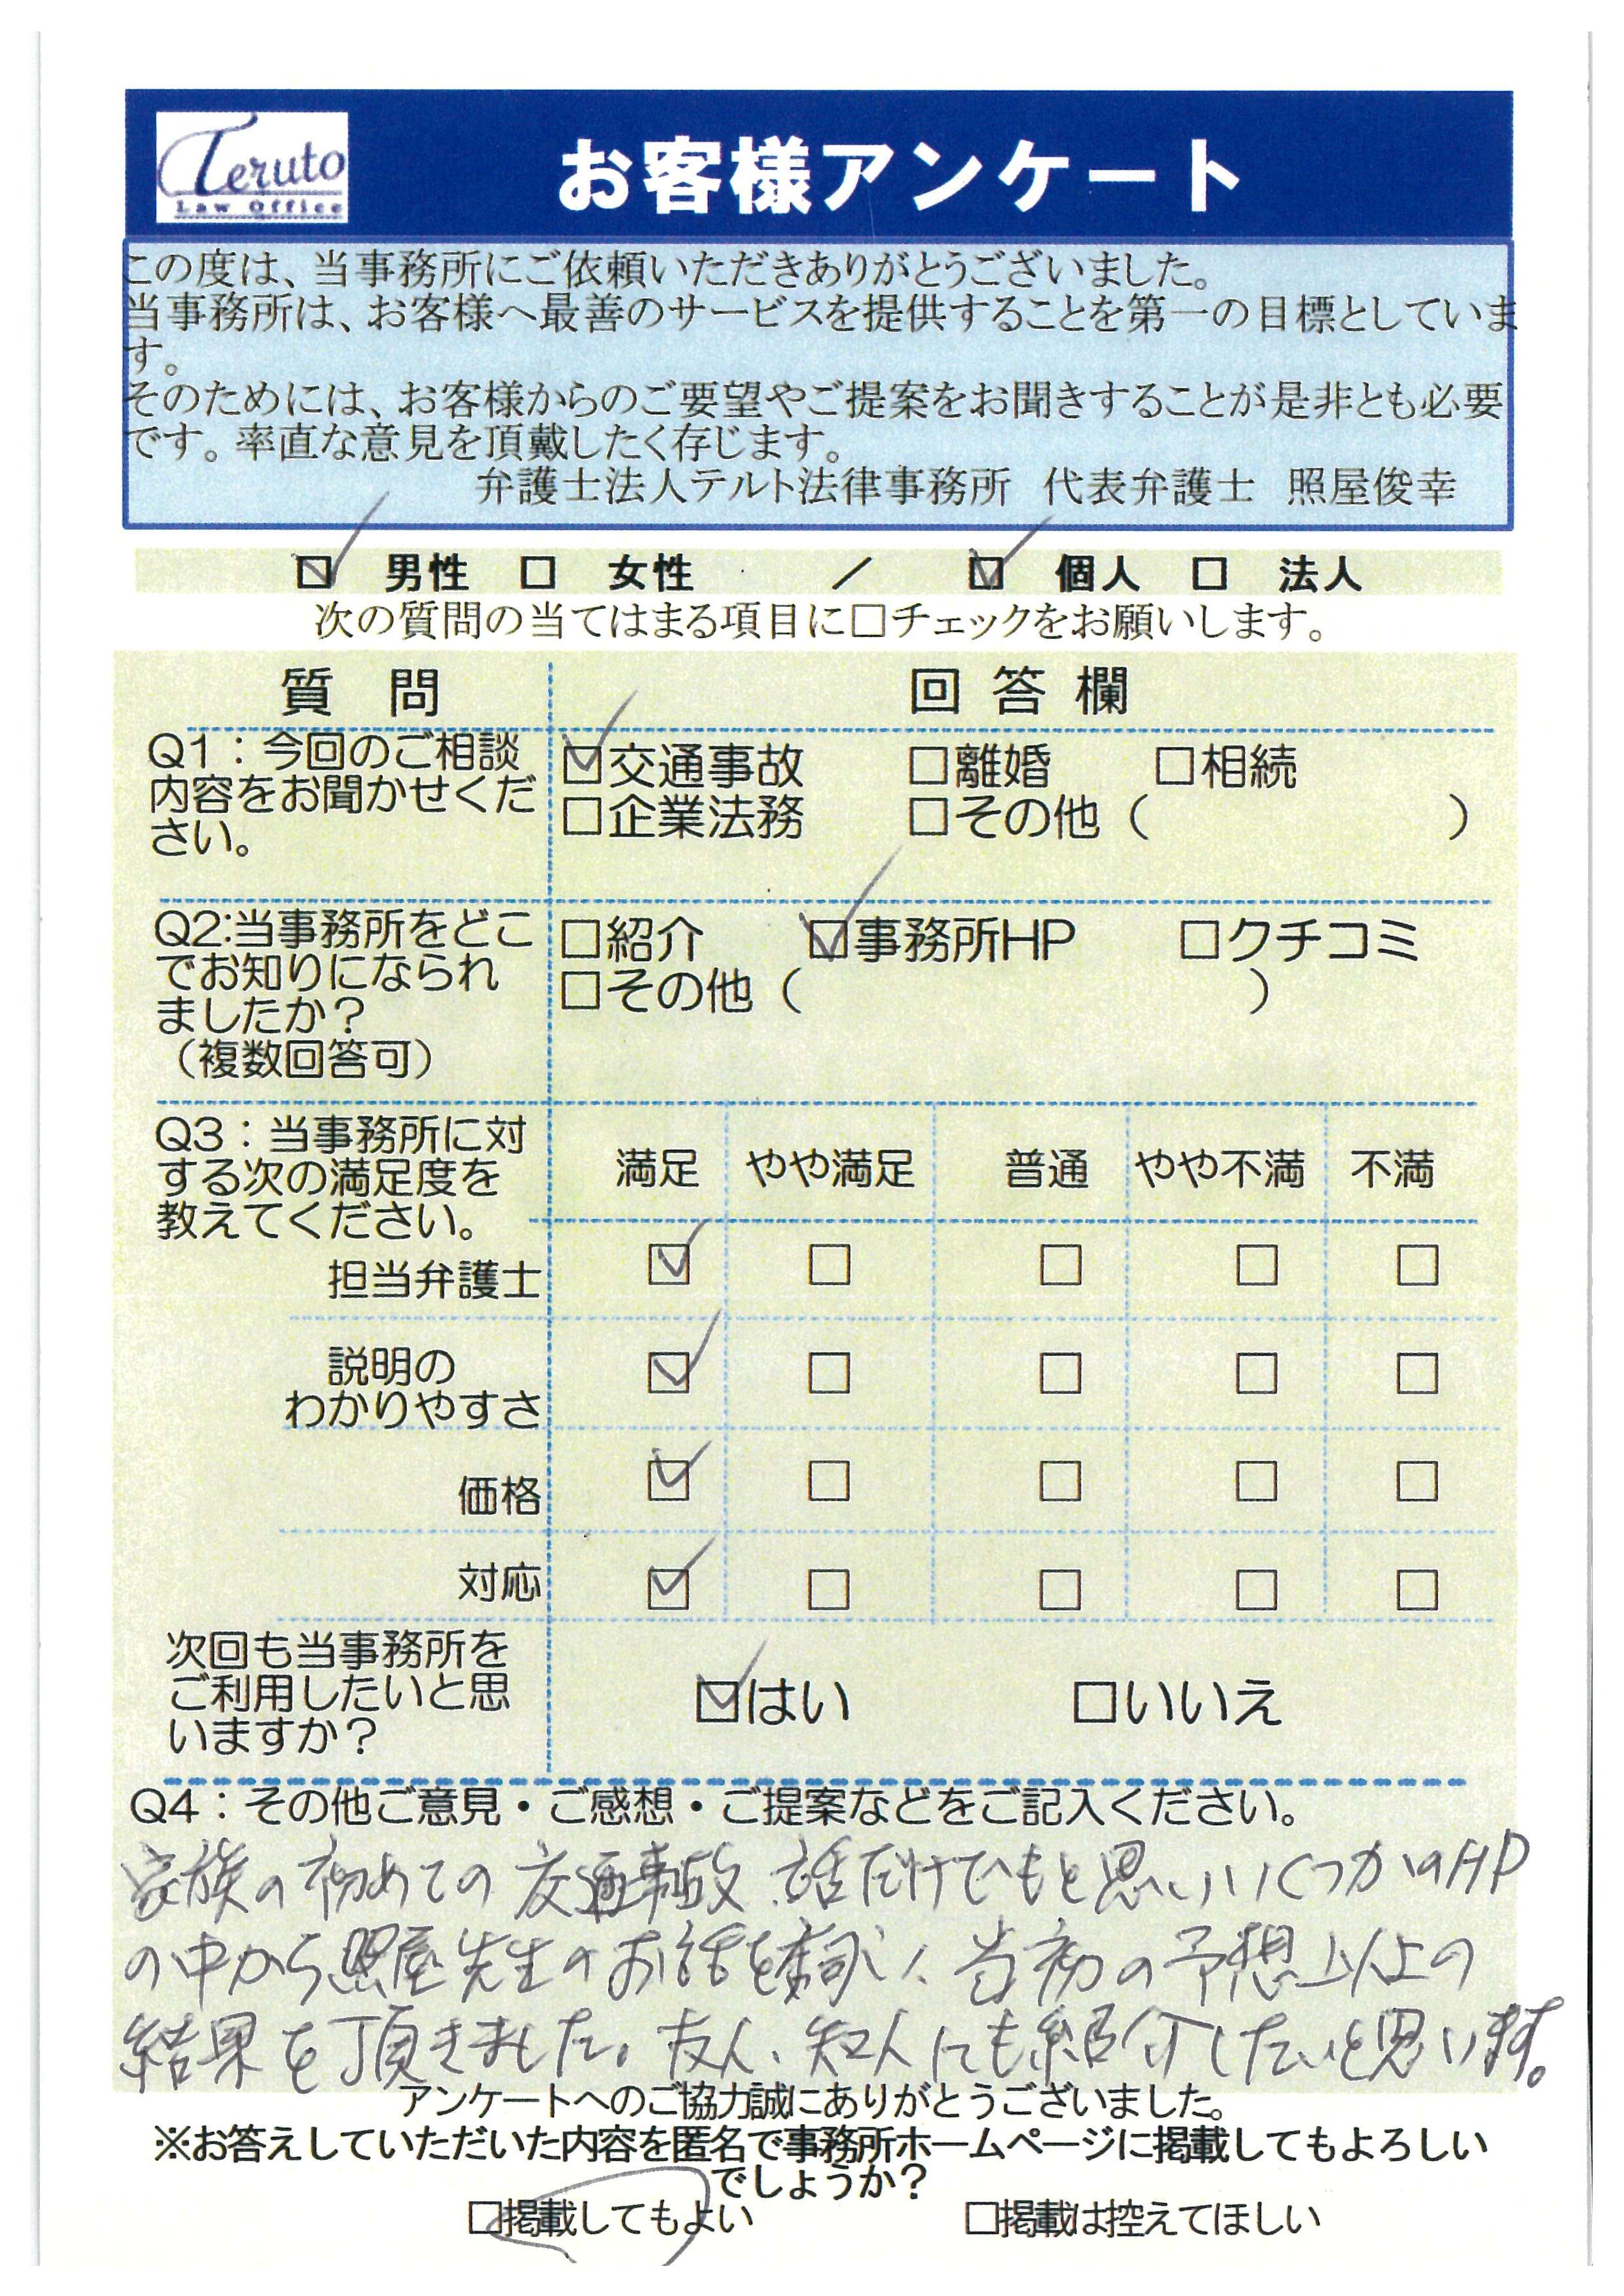 Teruto
Law Office
お客様アンケート
この度は、当事務所にご依頼いただきありがとうございました。
当事務所は、お客様へ最善のサービスを提供することを第一の目標としていま
す。
そのためには、お客様からのご要望やご提案をお聞きすることが是非とも必要
です。率直な意見を頂戴したく存じます。
弁護士法人テルト法律事務所 代表弁護士 照屋俊幸
☑ 男性 □ 女性 / ☑ 個人 □ 法人
次の質問の当てはまる項目に□チェックをお願いします。
質 問 回 答 欄
Q1:今回のご相談
内容をお聞かせくだ
さい。
☑交通事故 □離婚 □相続
□企業法務 □その他( )
Q2:当事務所をどこ
でお知りになられ
ましたか?
(複数回答可)
□紹介 ☑事務所HP □クチコミ
□その他( )
Q3:当事務所に対
する次の満足度を
教えてください。
満足 やや満足 普通 やや不満 不満
担当弁護士 ☑ □ □ □ □
説明の
わかりやすさ ☑ □ □ □ □
価格 ☑ □ □ □ □
対応 ☑ □ □ □ □
次回も当事務所を
ご利用したいと思
いますか?
☑はい □いいえ
Q4:その他ご意見・ご感想・ご提案などをご記入ください。
家族の初めての交通事故、話だけでもと思いいくつかのHP
の中から照屋先生のお話を伺い、当初の予想以上の
結果を頂きました。友人、知人にも紹介したいと思います。
アンケートへのご協力誠にありがとうございました。
※お答えしていただいた内容を匿名で事務所ホームページに掲載してもよろしい
でしょうか?
□掲載してもよい □掲載は控えてほしい